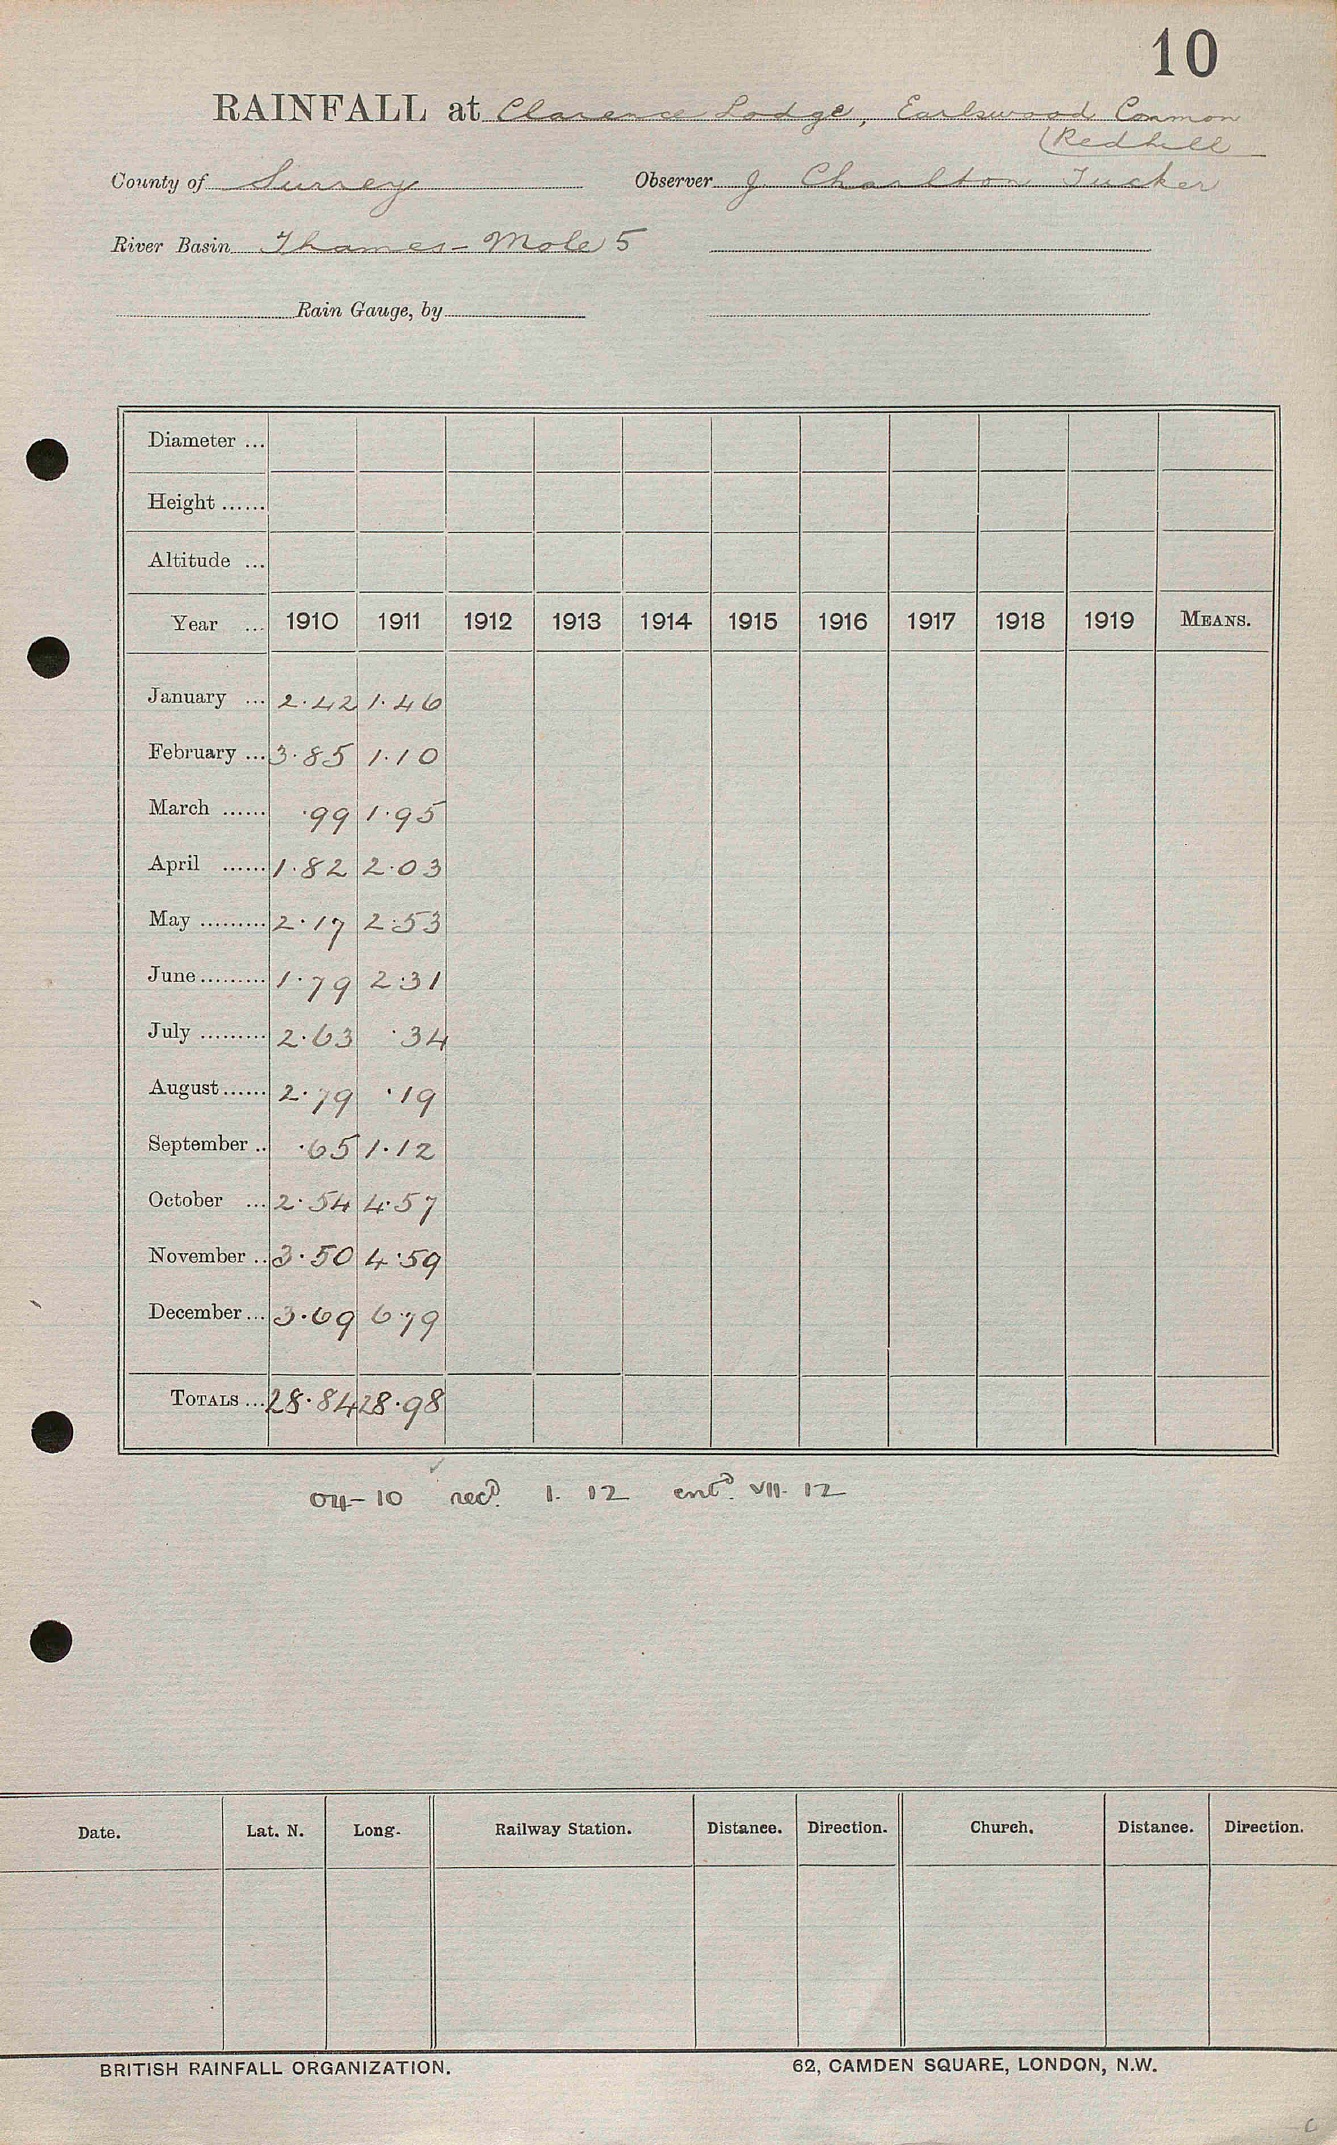 10
RAINFALL at Clarence Lodge, Earlswood Common
(Redhill
County of Surrey Observer J. Charlton Tucker
River Basin Thames - Mole 5
Rain Gauge, by
Diameter ...
Height ......
Altitude ...
Year ... 1910 1911 1912 1913 1914 1915 1916 1917 1918 1919 MEANS.
January ... 2.42 1.46
February ... 3.85 1.10
March ...... .99 1.95
April ...... 1.82 2.03
May ......... 2.17 2.53
June ......... 1.79 2.31
July ......... 2.63 .34
August ...... 2.79 .19
September .. .65 1.12
October ... 2.54 4.57
November .. 3.50 4.59
December ... 3.69 6.79
TOTALS ... 28.84 28.98
04-10 recd. 1. 12 entd. VII. 12
Date. Lat. N. Long. Railway Station. Distance. Direction. Church. Distance. Direction.
BRITISH RAINFALL ORGANIZATION. 62, CAMDEN SQUARE, LONDON, N.W.